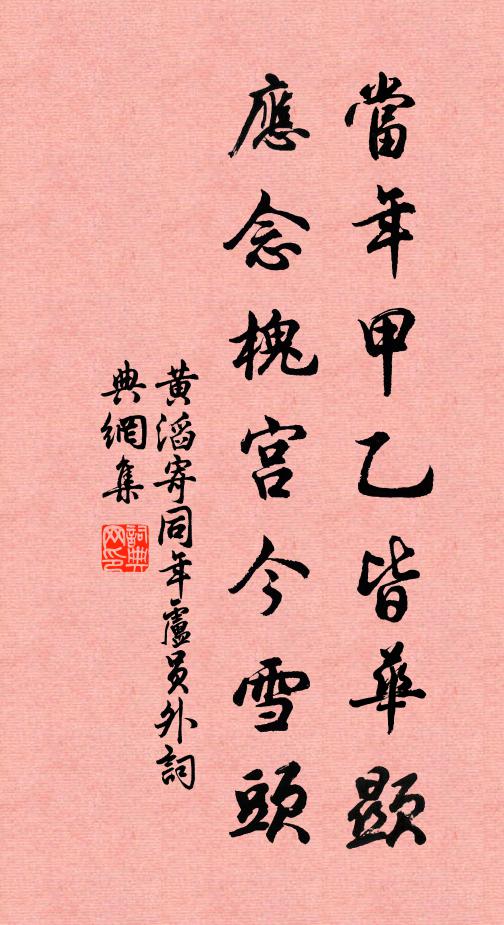 當年甲乙皆華顯
應念槐宮今雪頭
黃滔寄同年盧員外詞
典網集
詞典
网印